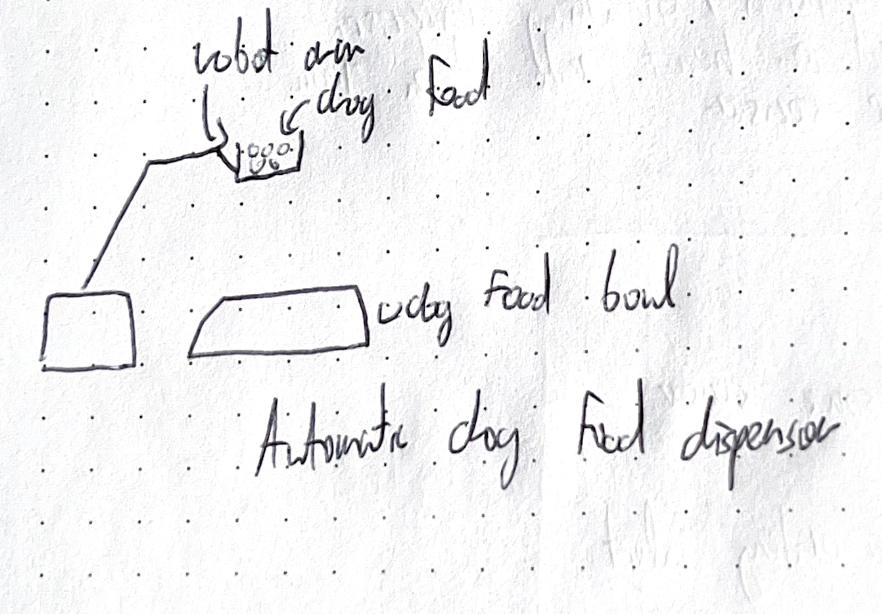 robot arm
dog food
dog food bowl
Automatic dog food dispensor